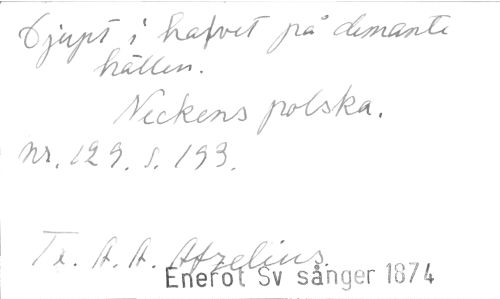 Djupt i hafvet på demante
hällen.
Neckens polska.
Nr. 129. s. 193.
Tr. A. A. Afzelius.
Enerot Sv sånger 1874